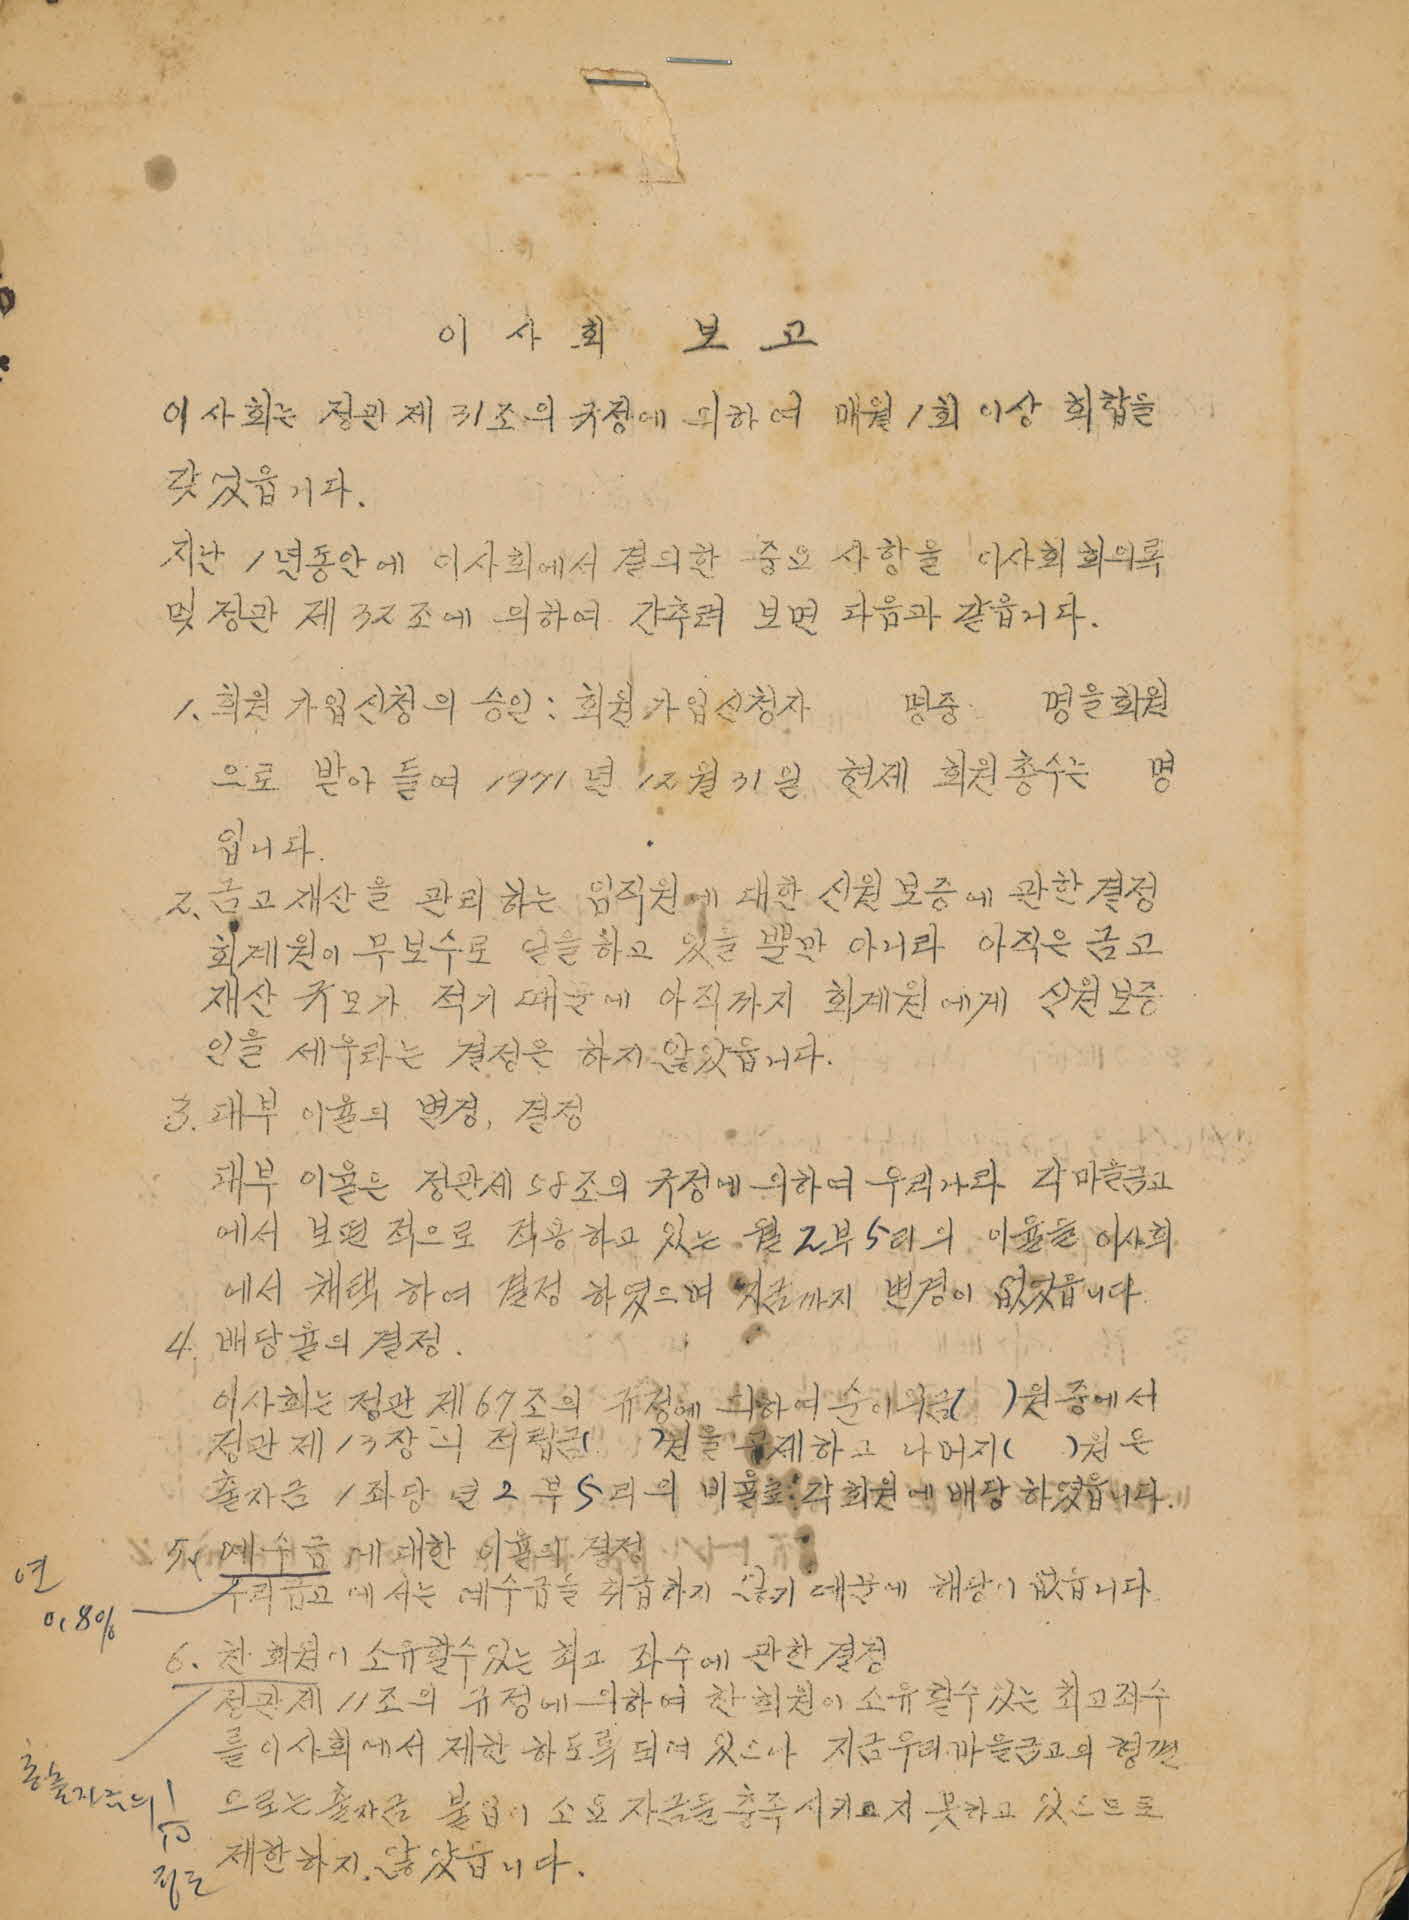 이사회 보고
이사회는 정관 제31조의 규정에 의하여 매월 1회 이상 회합을
갖었읍니다.
지난 1년동안에 이사회에서 결의한 중요 사항을 이사회 회의록
및 정관 제32조에 의하여 간추려 보면 다음과 같읍니다.
1. 회원 가입신청의 승인: 회원 가입신청자 명중 명을 회원
으로 받아 들여 1971년 12월 31일 현제 회원총수는 명
입니다.
2. 금고 재산을 관리 하는 임직원에 대한 신원보증에 관한 결정
회계원이 무보수로 일을 하고 있을 뿐만 아니라 아직은 금고
재산 규모가 적기 때문에 아직까지 회계원에게 신원보증
인을 세우라는 결정은 하지 않았읍니다.
3. 대부 이율의 변경, 결정
대부 이율은 정관제 58조의 규정에 의하여 우리나라 각 마을금고
에서 보편적으로 적용하고 있는 월 2부 5리의 이율을 이사회
에서 채택 하여 결정 하였으며 지금까지 변경이 없었읍니다
4. 배당율의 결정.
이사회는 정관 제67조의 규정에 의하여 순이익금( )원 중에서
정관 제13장의 적립금( )원을 공제하고 나머지( )원은
출자금 1좌당 년 2부 5리의 비율로 각 회원에 배당 하였읍니다.
5. 예수금에 대한 이율의 결정
우리금고에서는 예수금을 취급하지 않기 때문에 해당이 없읍니다
연
0.8%
6. 한 회원이 소유할수 있는 최고 좌수에 관한 결정
정관 제11조의 규정에 의하여 한 회원이 소유할수 있는 최고좌수
를 이사회에서 제한 하도록 되여 있으나 지금 우리 마을금고의 형편
으로는 출자금 불입이 소요 자금을 충족시키고지 못하고 있으므로
제한하지 않았읍니다.
총출자금의 1/10
정도